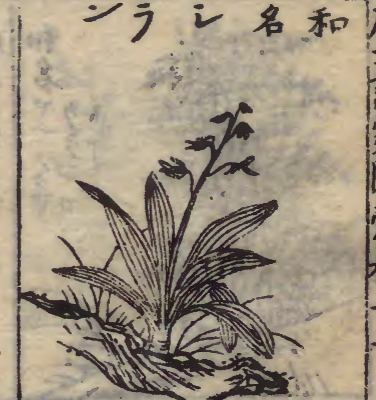 和名シラン